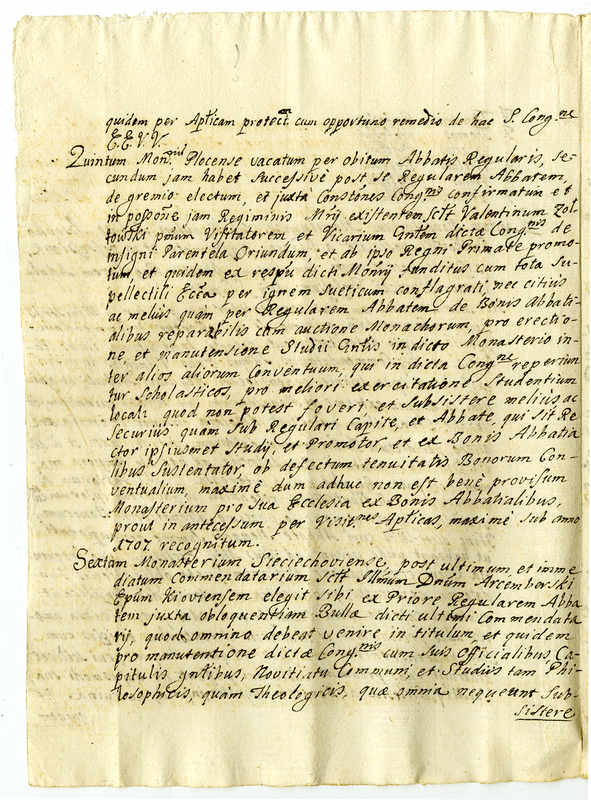 quidem per Apticam protect. cum opportuno remedio de hac S. Cong.ne
E.E.V.V.
Quintum Mon.rium Plocense vacatum per obitum Abbatis Regularis, Se-
cundum jam habet successive post se Regularem Abbatem,
de gremio electum, et juxta Constones Cong.nis confirmatum et
in possone jam Regiminis Mrij existentem sclt Valentinum Zol-
towski pnum Visitatorem et Vicarium Gntem dictæ Cong.nis de
insigni Parentela Oriundum, et ab ipso Regni Primate promo-
tum et quidem ex respu dicti Monrij funditus cum tota Su-
pellectili Eccia per ignem Sueticum conflagrati, nec citius
ac melius quam per Regularem Abbatem de Bonis Abbati-
alibus reparabilis cum auctione Monachorum, pro erectio-
ne, et manutensione Studii Gntis in dicto Monasterio in-
ter alios aliorum Conventuum, qui in dicta Cong.ne reperiun
tur Scholasticos, pro meliori exercitatione Studentium
locali quod non potest foveri, et subsistere melius ac
securius quam sub Regulari Capite, et Abbate, qui sit Re
ctor ipsiusmet Studij, et Promotor, et ex Bonis Abbatia
libus Sustentator, ob defectum tenuitatis Bonorum Con-
ventualium, maximè dum adhuc non est bene provisum
Monasterium pro sua Ecclesia ex Bonis Abbatialibus,
prout in antecessum per Visit.nes Apticas, maximè sub anno
1707. recognitum.
Sextam Monasterium Sieciechoviense, post ultimum et imme
diatum Commendatarium sclt Illmum Dnum Arcemberski
Epum Kioviensem elegit sibi ex Priore Regularem Abba
tem juxta obloquentiam Bullæ dicti ultimi Commendata
rij, quod omnino debeat venire in titulum, et quidem
pro manutentione dictæ Cong.nis cum suis officialibus Ca-
pitulis gntibus, Novitiatu Communi, et Studiis tam Phi-
losophicis, quàm Theologicis, quæ omnia nequeunt Sub-
sistere